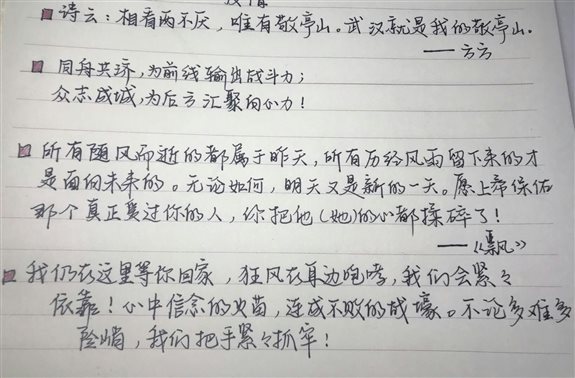 诗云：相看两不厌，唯有敬亭山。武汉就是我的敬亭山。
——方方
同舟共济，为前线输出战斗力；
众志成城，为后方汇聚向心力！
所有随风而逝的都属于昨天，所有历经风雨留下来的才
是面向未来的。无论如何，明天又是新的一天。愿上帝保佑
那个真正爱过你的人，你把他（她）的心都揉碎了！
——《飘》
我仍在这里等你回家，狂风在身边咆哮，我们会紧々
依靠！心中信念的火苗，连成不败的战壕。不论多难多
险峭，我们把手紧々抓牢！